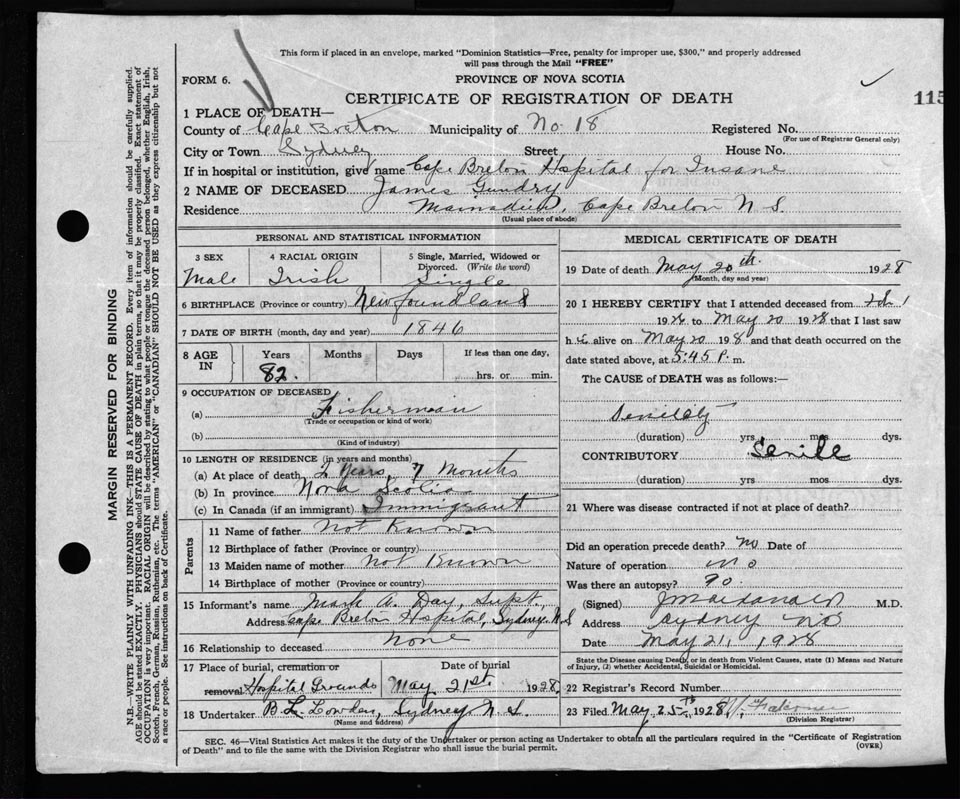 This form if placed in an envelope, marked "Dominion Statistics—Free, penalty for improper use, $300," and properly addressed
will pass through the Mail "FREE"
FORM 6.
PROVINCE OF NOVA SCOTIA
CERTIFICATE OF REGISTRATION OF DEATH
115
1 PLACE OF DEATH—
County of Cape Breton Municipality of No. 18 Registered No.
(For use of Registrar General only)
City or Town Sydney Street House No.
If in hospital or institution, give name Cape Breton Hospital for Insane
2 NAME OF DECEASED James Gundry
Residence Mainadieu, Cape Breton N S.
(Usual place of abode)
PERSONAL AND STATISTICAL INFORMATION
3 SEX 4 RACIAL ORIGIN 5 Single, Married, Widowed or Divorced. (Write the word)
Male Irish Single
6 BIRTHPLACE (Province or country) Newfoundland
7 DATE OF BIRTH (month, day and year) 1846
8 AGE IN Years Months Days If less than one day,
82. hrs. or min.
9 OCCUPATION OF DECEASED
(a) Fisherman
(Trade or occupation or kind of work)
(b)
(Kind of industry)
10 LENGTH OF RESIDENCE (in years and months)
(a) At place of death 2 Years 7 Months
(b) In province Nova Scotia
(c) In Canada (if an immigrant) Immigrant
Parents
11 Name of father Not Known
12 Birthplace of father (Province or country)
13 Maiden name of mother Not Known
14 Birthplace of mother (Province or country)
15 Informant's name Mark A. Day, Supt.,
Address Cape Breton Hospital, Sydney N S
16 Relationship to deceased None
17 Place of burial, cremation or removal Hospital Grounds
Date of burial May 21st 1928
18 Undertaker B L Lowden, Sydney N. S.
(Name and address)
MEDICAL CERTIFICATE OF DEATH
19 Date of death May 20th. 1928
(Month, day and year)
20 I HEREBY CERTIFY that I attended deceased from
192 to May 20 1928 that I last saw
h alive on May 20 198 and that death occurred on the
date stated above, at 5:45 P. m.
The CAUSE OF DEATH was as follows:—
Senility
(duration) yrs. mos dys.
CONTRIBUTORY Senile
(duration) yrs mos dys.
21 Where was disease contracted if not at place of death?
Did an operation precede death? No Date of
Nature of operation no
Was there an autopsy? no.
(Signed) M.D.
Address Sydney NS
Date May 21, 1928
State the Disease causing Death, or in death from Violent Causes, state (1) Means and Nature of Injury, (2) whether Accidental, Suicidal or Homicidal.
22 Registrar's Record Number
23 Filed May 25th 1928 Falconer
(Division Registrar)
SEC. 46—Vital Statistics Act makes it the duty of the Undertaker or person acting as Undertaker to obtain all the particulars required in the "Certificate of Registration
of Death" and to file the same with the Division Registrar who shall issue the burial permit.
(OVER)
MARGIN RESERVED FOR BINDING
N.B.—WRITE PLAINLY WITH UNFADING INK—THIS IS A PERMANENT RECORD. Every item of information should be carefully supplied.
AGE should be stated EXACTLY. PHYSICIANS should STATE CAUSE OF DEATH in plain terms, so that it may be properly classified. Exact statement of
OCCUPATION is very important. RACIAL ORIGIN will be described by stating to what people or tongue the deceased person belonged, whether English, Irish,
Scotch, French, German, Russian, Ruthenian, etc. The terms "AMERICAN" or "CANADIAN" SHOULD NOT BE USED as they express citizenship but not
a race or people. See instructions on back of Certificate.